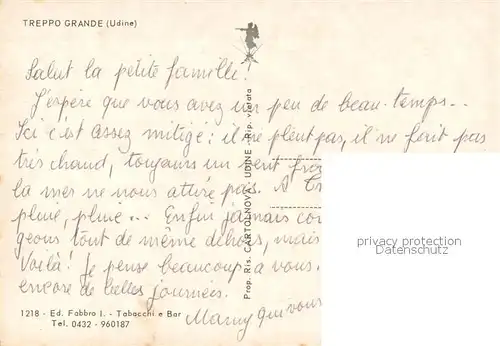 TREPPO GRANDE (Udine)
Salut la petite famille!
J'espère que vous avez un peu de beau temps...
Ici c'est assez mitigé: il ne pleut pas, il ne fait pas
très chaud, toujours un vent
la mer ne nous attire pas. A
pluie, pluie... Enfin jamais
geons tout de même dehors, mais
Voilà! Je pense beaucoup a vous.
encore de belles journées.
Mamy qui vous
1218 - Ed. Fabbro I. - Tabacchi e Bar
Tel. 0432 - 960187
Prop. Ris. CARTOLNOVA - UDINE - Rip. vietata
privacy protection
Datenschutz